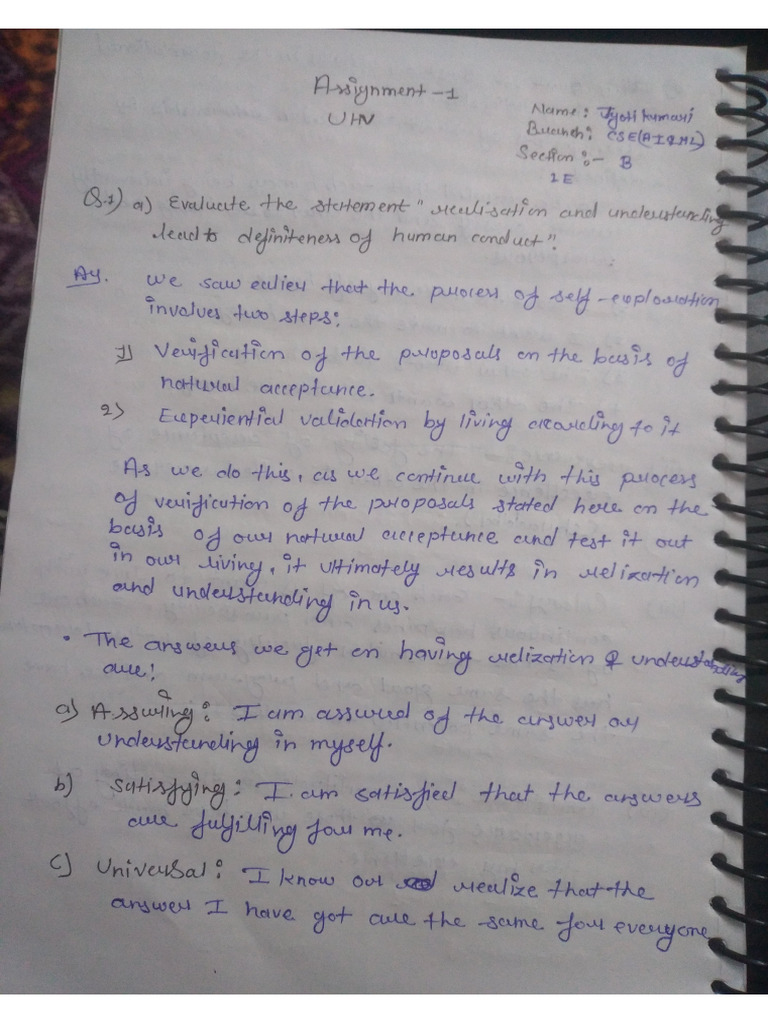 Assignment-1
UHV
Name: Jyoti kumari
Branch: CSE(AI&ML)
Section:- B
1E
Q.1) a) Evaluate the statement "realisation and understanding
lead to definiteness of human conduct".
Ay. we saw ealier that the process of self-exploration
involves two steps:
1) Verification of the proposals on the basis of
natural acceptance.
2) Experiential validation by living according to it
As we do this, as we continue with this process
of verification of the proposals stated here on the
basis of our natural acceptance and test it out
in our living, it ultimately results in relization
and understanding in us.
• The answers we get on having relization & understanding
are!
a) Assuring: I am assured of the answer or
understanding in myself.
b) Satisfying: I am satisfied that the answers
are fulfilling for me.
c) Universal: I know or realize that the
answer I have got are the same for everyone